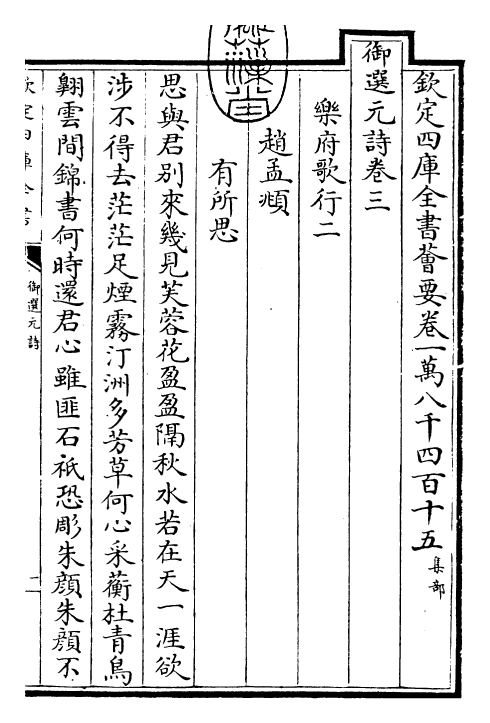 欽定四庫全書薈要卷一萬八千四百十五集部
御選元詩卷三
樂府歌行二
趙孟頫
有所思
思與君别來幾見芙蓉花盈盈隔秋水若在天一涯欲
涉不得去茫茫足煙霧汀洲多芳草何心采蘅杜青鳥
翱雲間錦書何時還君心雖匪石祇恐彫朱顔朱顔不
御選元詩